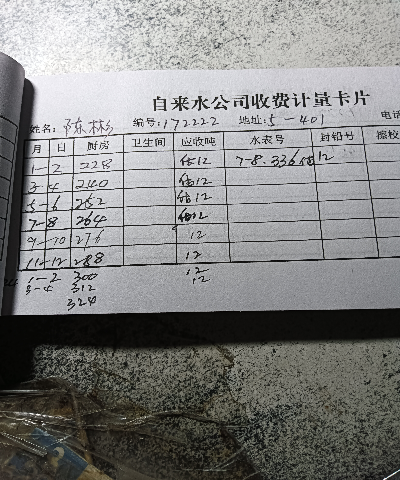 自来水公司收费计量卡片
姓名: 陈彬 编号: 172222 地址: 5-401 电话
月 日 厨房 卫生间 应收吨 水表号 封铅号 擦校
1-2 228 估12 7-8 336 估12
3-4 240 估12
5-6 252 估12
7-8 264 估12
9-10 276 12
11-12 288 12
1-2 300 12
3-4 312 12
324